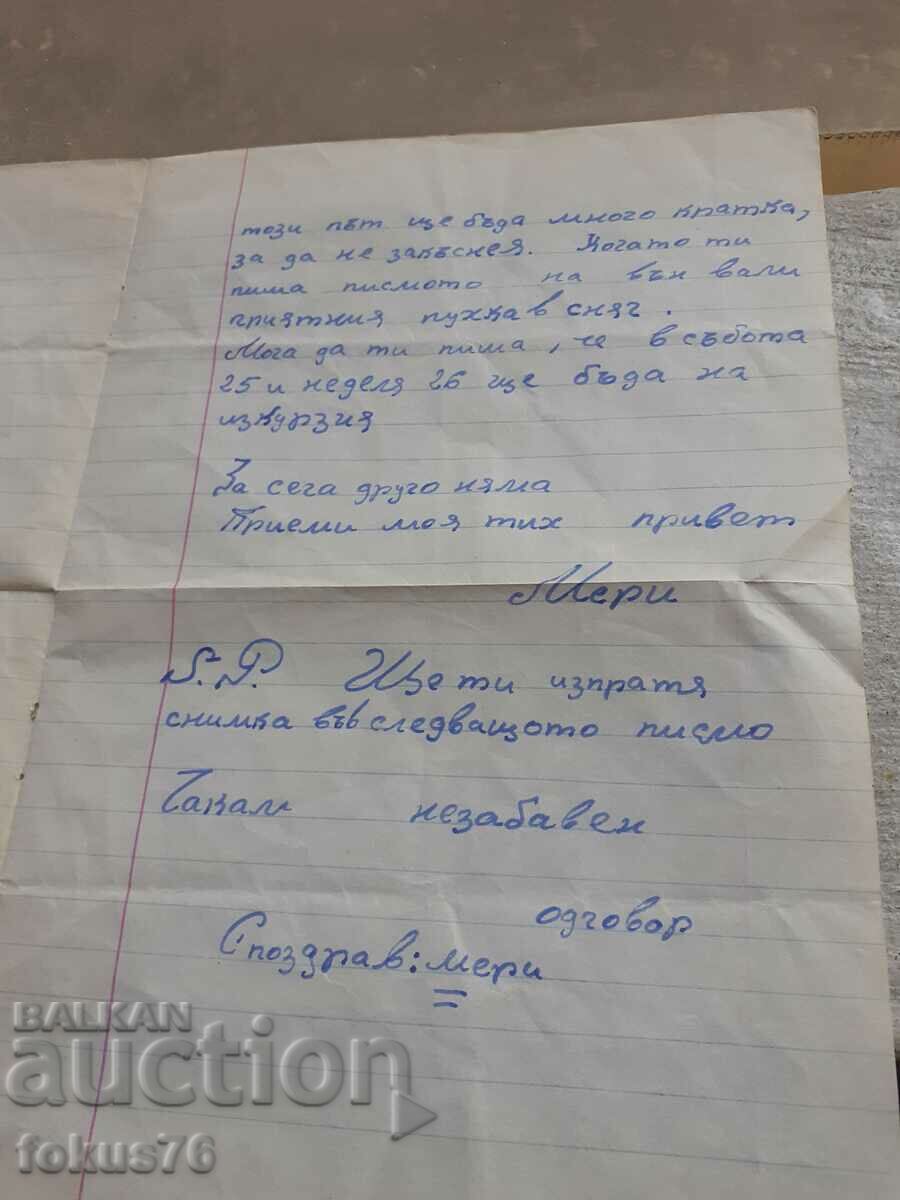 този път ще бъда много кратка,
за да не закъснея. Когато ти
пиша писмото на вън вали
приятния пухкав сняг.
Мога да ти пиша, че в събота
25 и неделя 26 ще бъда на
изкурзия
За сега друго няма
Приеми моя тих привет
Мери
S.P. Ще ти изпратя
снимка във следващото писмо
Чакам незабавен
одговор
С поздрав: мери
BALKAN
auction
fokus76